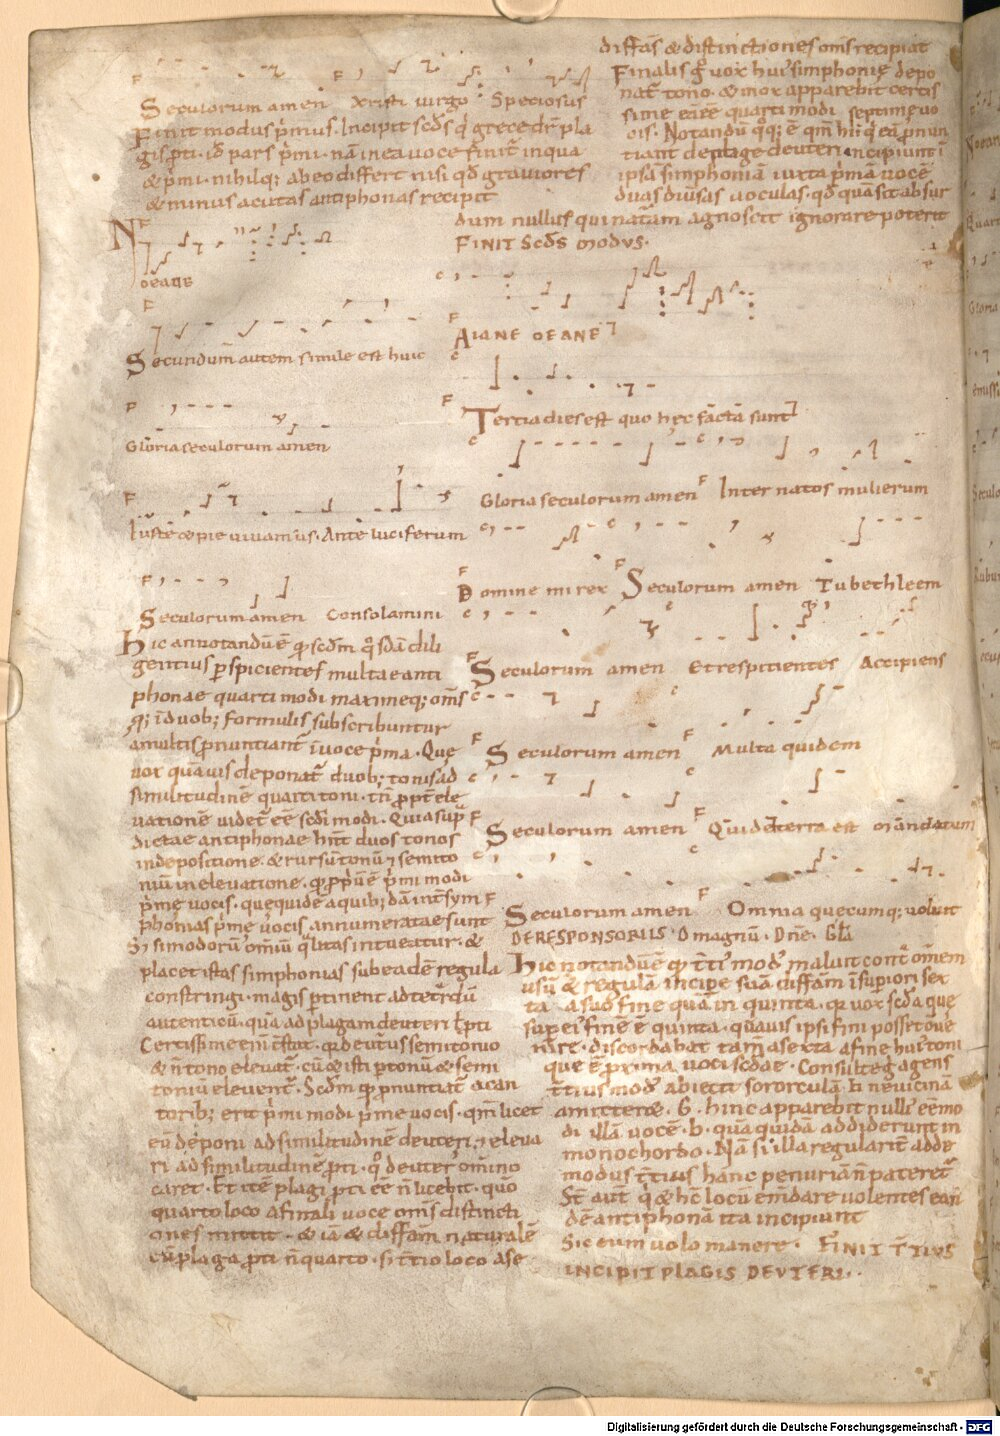 Seculorum amen Xristi virgo Speciosus
Finit modus p̄mus. Incipit scds q̇ grece dr̄ pla
gis p̄ti. id pars p̄mi. nā in ea voce finit̄ in qua
& p̄mi. nihilq; ab eo differt nisi qd̄ graviores
& minus acutas antiphonas recipit
NOEANE
Secundum autem simile est huic
Gloria seculorum amen
Iuste & pie vivamus. Ante luciferum
Seculorum amen Consolamini
Hic annotandū ē qꝫ scdm̄ q̊sdā dili
gentius ꝑspicientes multae anti
phonae quarti modi maximeq; om̄s
q; ī duob; formulis subscribuntur
a multis ꝓnuntiant̄ ī voce p̄ma. Que
vox quāvis deponat̄ duob; tonis ad
similitudinē quarti toni. tn̄ ꝓpt̄ ele
vationē videt̄ eē scdi modi. Quia sup̄
dictae antiphonae hn̄t duos tonos
in depositione. & rursū tonū ⁊ semito
niū in elevatione. qꝫ ꝓp̄ū ē p̄mi modi
p̄me vocis. que quidē a quib; dā int̄ sym
phonias p̄me vocis annumeratae sunt
Si si modorū om̄iū q̄litas intueatur. &
placet istas simphonias sub eadē regula
constringi. magis ptinent ad tetrdū
autenticū. quā ad plagam deuteri t̄ p̄ti
Certissime eni c̄stat. qꝛ deut̄us semitonio
& n̄ tono elevat̄. cū & isti ꝑ tonū & semi
toniū elevent̄. Scdm̄ qꝫ ꝓnuntiat̄ a can
torib; erit p̄mi modi p̄me vocis. qm̄ licet
eū deponi ad similitudinē deuteri, ⁊ eleva
ri ad similitudinē p̄ti. q̊ deuter̄ om̄ino
caret. Et itē plagi p̄ti eē n̄ licebit. quō
quarto loco a finali voce om̄s distincti
ones mittit. & iā & diffam naturalē
cū plaga p̄ti n̄ quarto. s; t̄tio loco a se
diffas & distinctiones om̄s recipiat
Finalis g̊ vox hui' simphonie depo
nat̄ tono. & mox apparebit certis
sime eā eē quarti modi septime vo
cis. Notandū q̊q; ē qm̄ hi q̇ eā ꝓnun
tiant de plage deuteri incipiunt ī
ipsā simphoniam iuxta p̄mā vocē
duas diūsas voculas. qd̄ quā sit absur
dum nullus qui natām agnoscit ignorare poterit
FINIT Scds̄ MODVS.
AIANE OEANE
Tertia dies est quo hec facta sunt
Gloria seculorum amen Inter natos mulierum
Domine mi rex Seculorum amen Tu bethleem
Seculorum amen Et respicientes Accipiens
Seculorum amen Multa quidem
Seculorum amen Qui de terra est Mandatum
Seculorum amen Omnia quecumq; voluit
DE RESPONSORIIS. O magnū. Dn̄e. Gl̄a
Hic notandū ē qꝫ t̄ti' mod' maluit cont̄ om̄em
usū & regulā incipe suā diffam ī supiori sex
ta a suo fine quā in quinta. qꝛ vox scda que
sup ei' fine ē quinta. quāvis ipsi fini posset ōve
nire. discordabat tam̄ a sexta a fine hui' toni
que ē prima voci scdae. Consulte g̊ agens
t̄tius mod' abiecit sororculā. b. nevicinā
amitteret. G. hinc apparebit nulli' eē mo
di illā vocē. b. quā quidā addiderunt in
monochordo. Nā si illa regularit̄ adde
modus t̄tius hanc penuriā n̄ pateret̄
St̄ aut̄ q̇ & hc̄ locū em̄dare volentes ean
dē antiphonā ita incipiunt
Sic eum volo manere. FINIT T̄TIVS
INCIPIT PLAGIS DEVTERI.
Digitalisierung gefördert durch die Deutsche Forschungsgemeinschaft - DFG